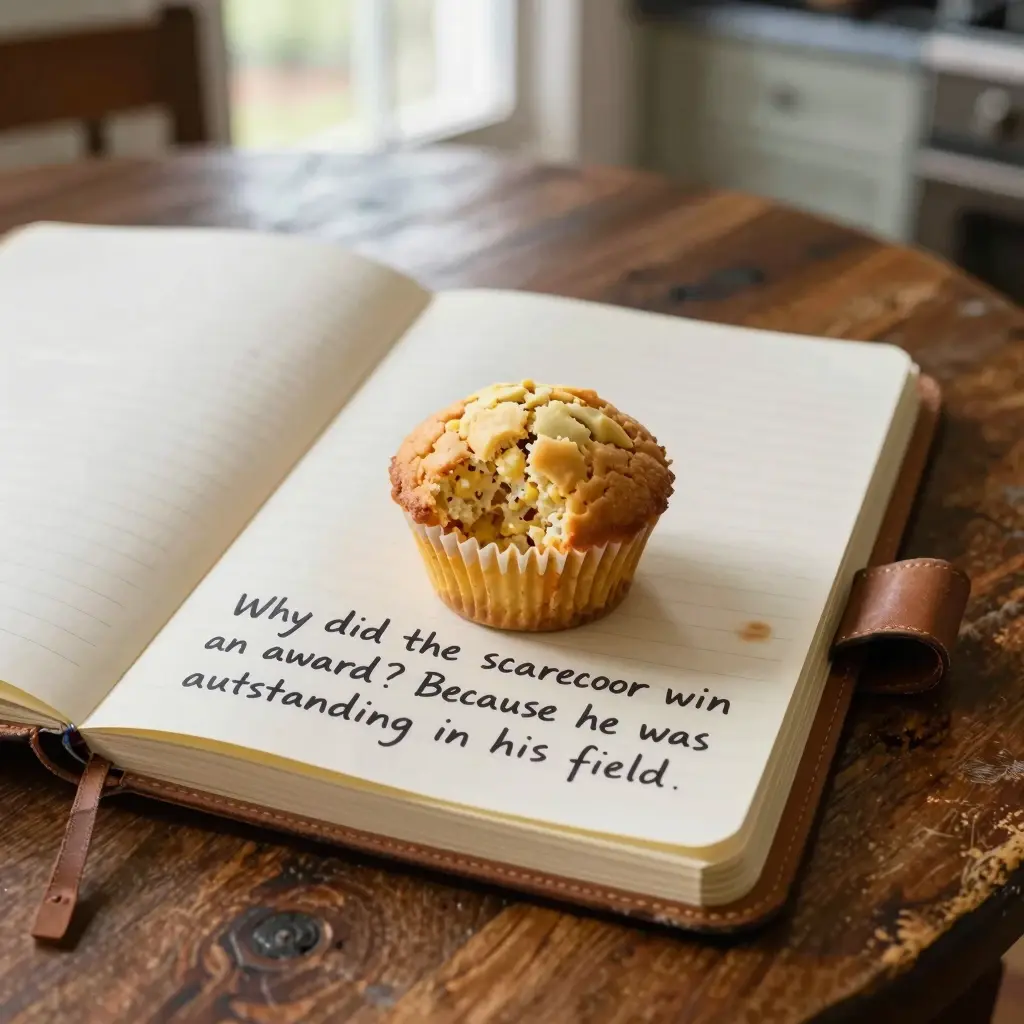 Why did the scarecoor win
an award? Because he was
autstanding in his field.